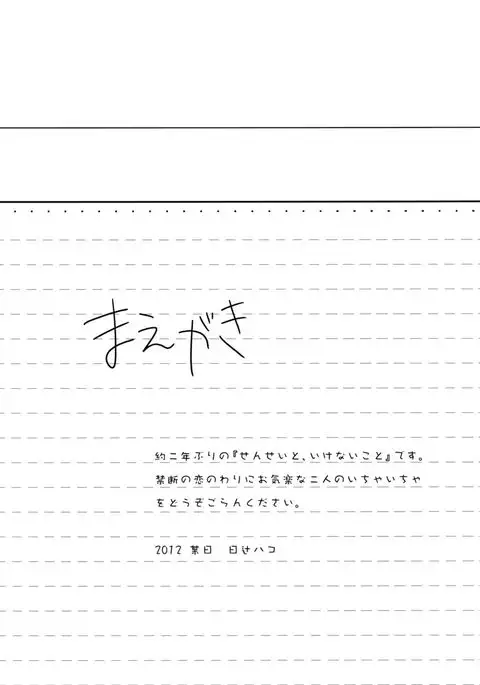 まえがき
約二年ぶりの『せんせいと、いけないこと』です。
禁断の恋のわりにお気楽な二人のいちゃいちゃ
をどうぞごらんください。
2012 葉日 日辻ハコ